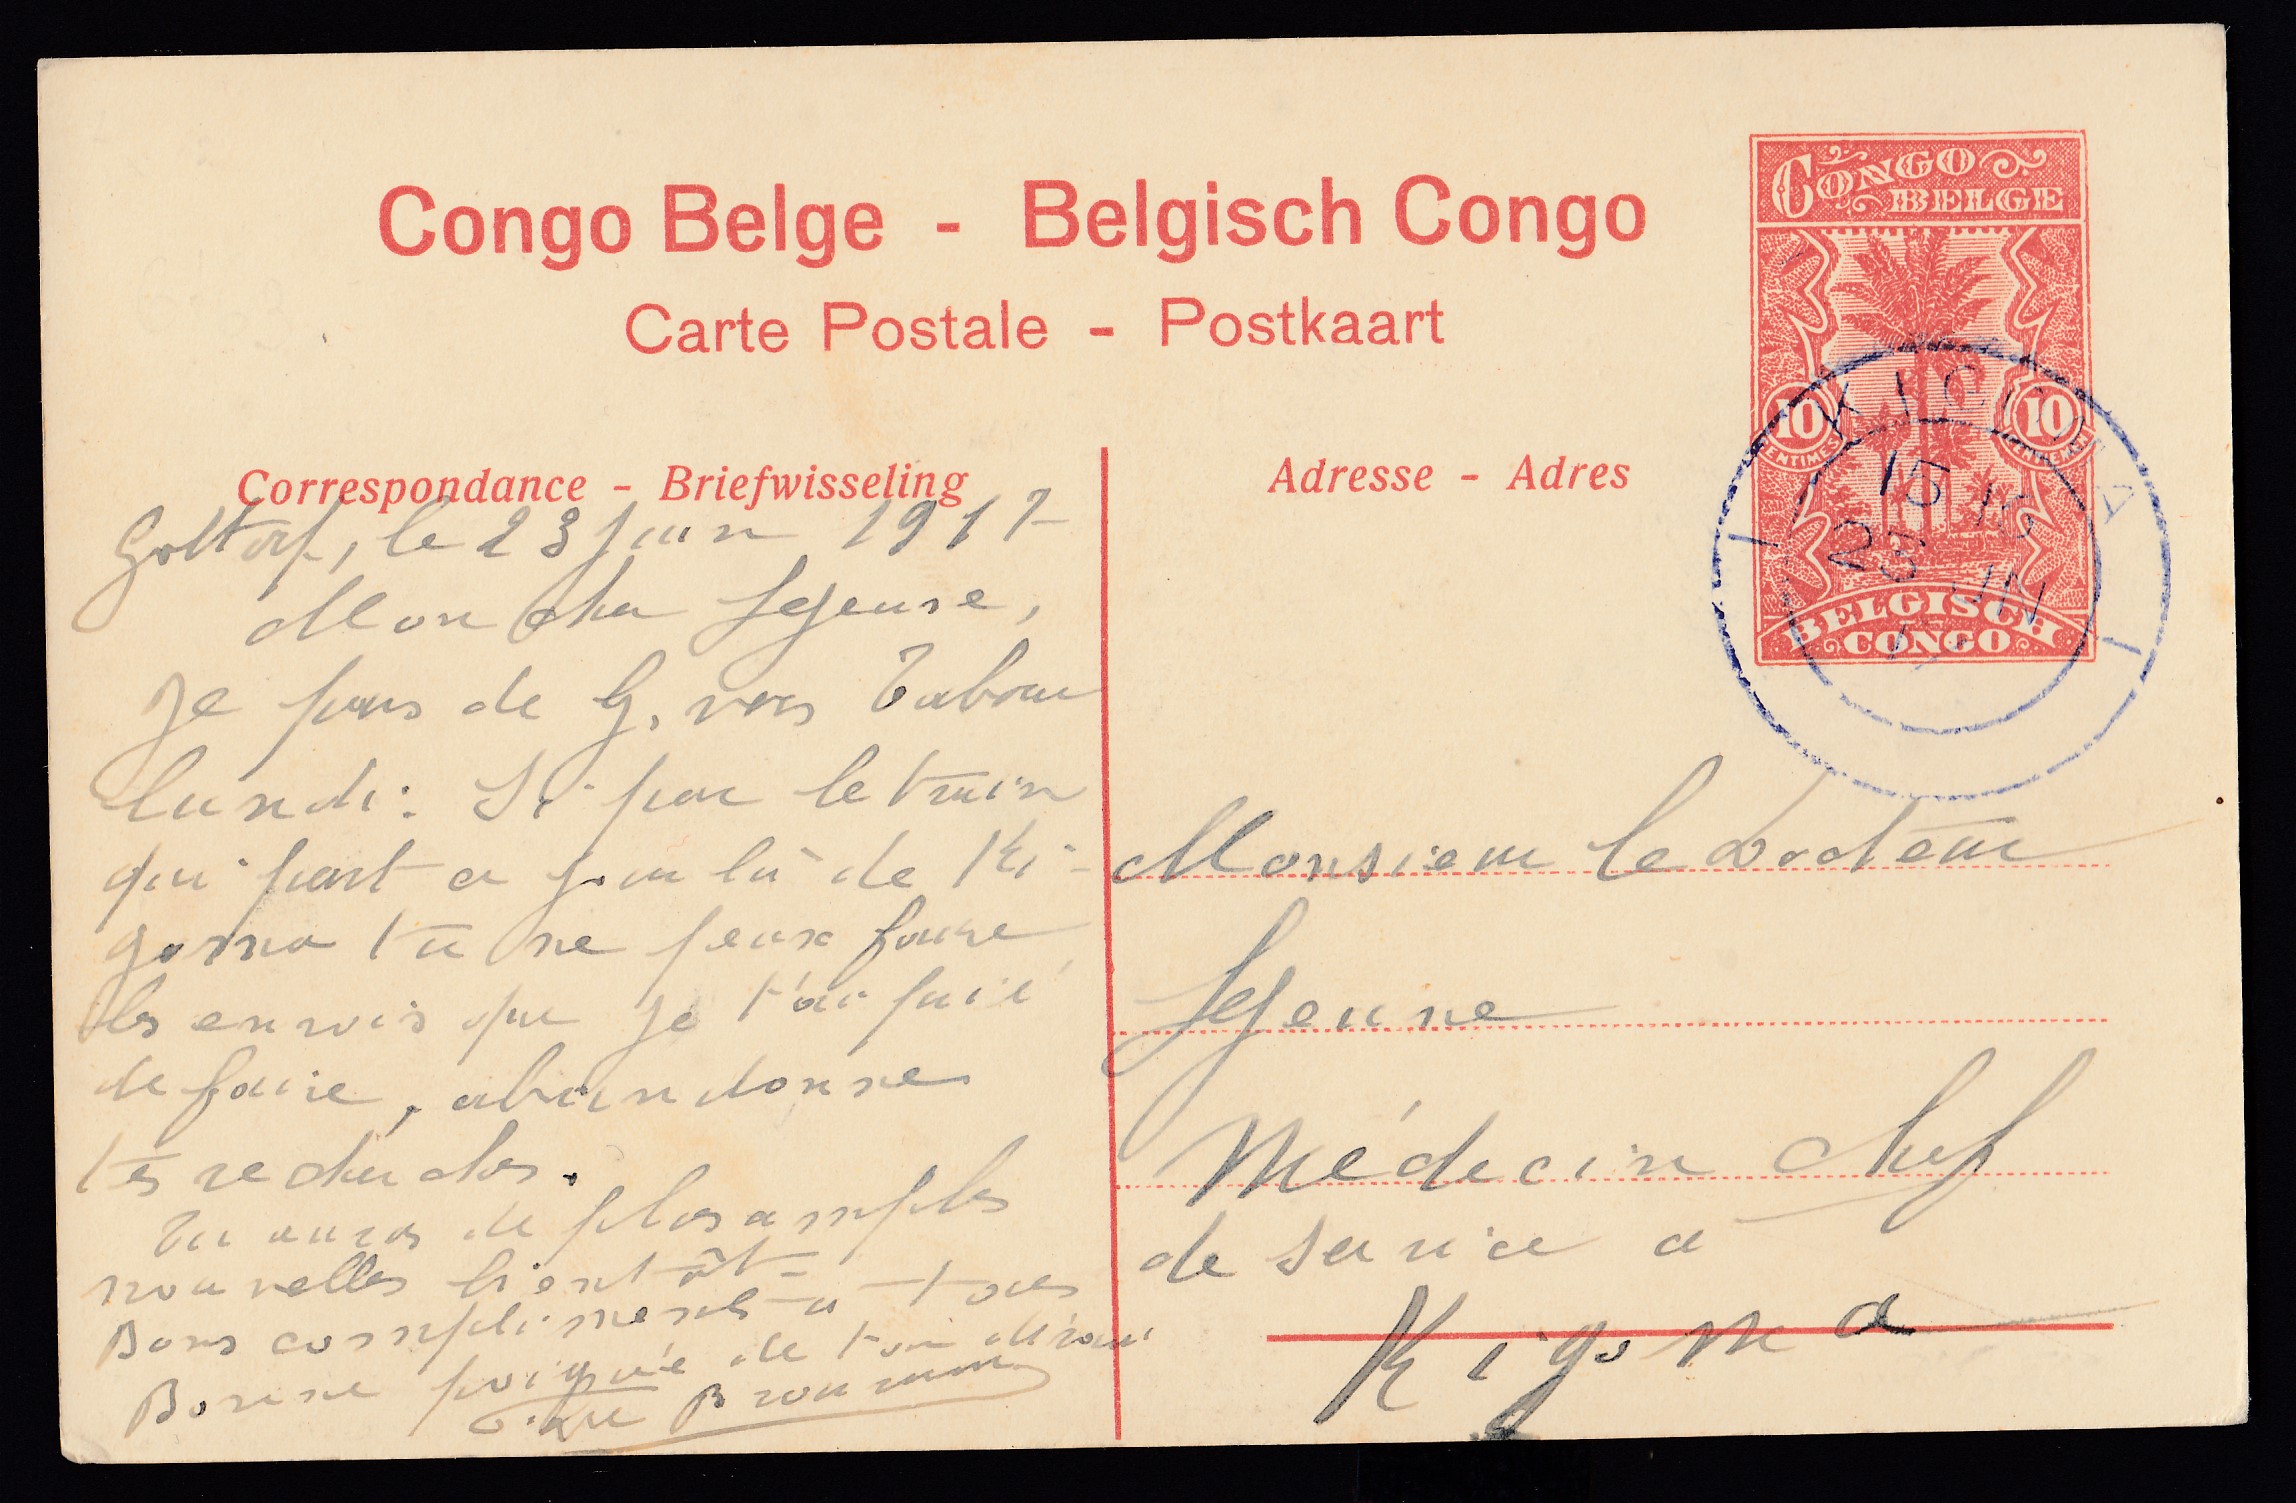 Congo Belge - Belgisch Congo
Carte Postale - Postkaart
CONGO
BELGE
10
10
CENTIMES
BELGISCH
CONGO
KIGOMA
15 15
23 JUN
17
Correspondance - Briefwisseling
Gottorp, le 23 juin 1917
Mon cher Lejeune,
Je pars de G. vers Tabora
lundi: Si par le train
qui part a jour là de Ki-
goma tu ne peux faire
les envois que je t'ai prié
de faire, abandonne
tes recherches.
Tu auras de plus amples
nouvelles bientôt -
Bons compliments à tous
Bonne poignée de
Adresse - Adres
Monsieur le Docteur
Lejeune
Médecin Chef
de service a
Kigoma